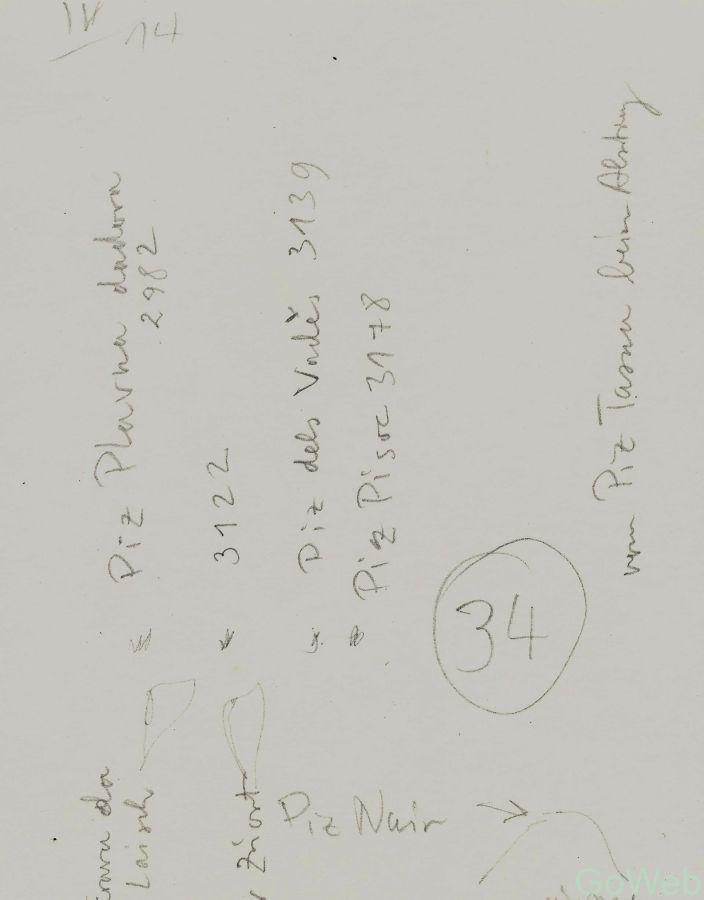 IV
14
Piz Plavna dadora
2982
3122
Piz dels Vadès 3139
Piz Pisoc 3178
34
vom Piz Tasna beim Abstieg
da
Laisch
Piz Nair
GoWeb